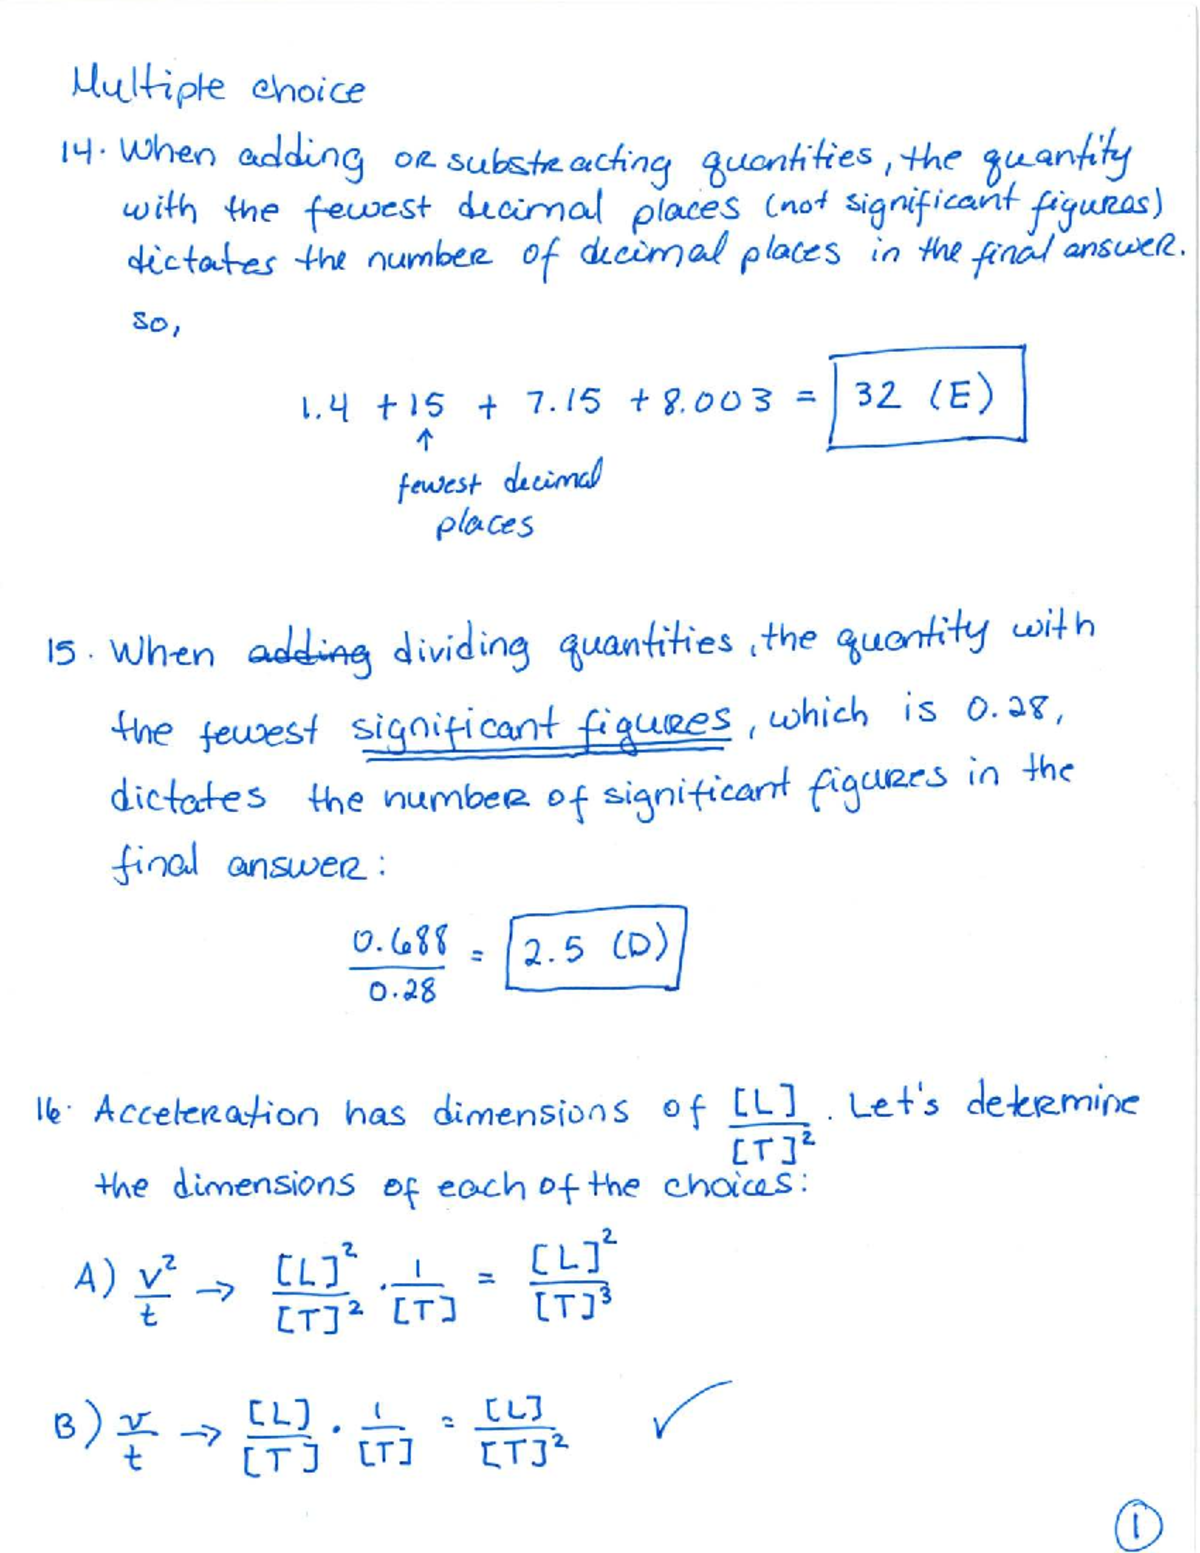 Multiple choice
14. When adding or substracting quantities, the quantity
with the fewest decimal places (not significant figures)
dictates the number of decimal places in the final answer.
so,
1.4 + 15 + 7.15 + 8.003 = 32 (E)
↑
fewest decimal
places
15. When adding dividing quantities, the quantity with
the fewest significant figures, which is 0.28,
dictates the number of significant figures in the
final answer:
0.688 / 0.28 = 2.5 (D)
16. Acceleration has dimensions of [L] / [T]². Let's determine
the dimensions of each of the choices:
A) v² / t → [L]² / [T]² · 1 / [T] = [L]² / [T]³
B) v / t → [L] / [T] · 1 / [T] = [L] / [T]² ✓
1